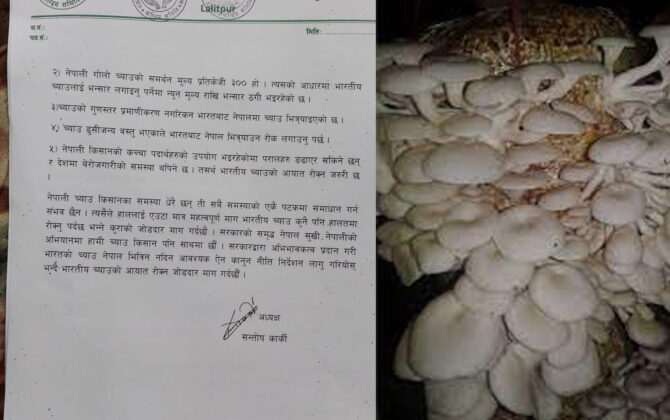 Lalitpur
प.सं.:
पत्र.सं.:
मिति:
२) नेपाली गोलो च्याउको समर्थन मूल्य प्रतिकेजी ३०० हो । त्यसको आधारमा भारतीय
च्याउलाई भन्सार लगाउनु पर्नेमा न्युन मुल्य राखि भन्सार ठगी भइरहेको छ ।
३)च्याउको गुणस्तर प्रमाणीकरण नगरिकन भारतबाट नेपालमा च्याउ भित्र्याइएको छ ।
४) च्याउ ढुसीजन्य वस्तु भएकाले भारतबाट नेपाल भित्र्याउन रोक लगाउनु पर्छ ।
५) नेपाली किसानको कच्चा पदार्थहरुको उपयोग भइरहेकोमा परालहरु डढाएर सकिने छन्
र देशमा बेरोजगारीको समस्या थपिने छ । तसर्थ भारतीय च्याउको आयात रोक्न जरुरी छ
।
नेपाली च्याउ किसानका समस्या धेरै छन् ती सबै समस्याको एकै पटकमा समाधान गर्न
संभव छैन । त्यसैले हाललाई एउटा मात्र महत्वपूर्ण माग भारतीय च्याउ कुनै पनि हालतमा
रोक्नु पर्दछ भन्ने कुराको जोडदार माग गर्दछौं । सरकारको समृद्ध नेपाल सुखी नेपालीको
अभियानमा हामी च्याउ किसान पनि साथमा छौं । सरकारद्वारा अभिभावकत्व प्रदान गरी
भारतको च्याउ नेपाल भित्रिन नदिन आवश्यक ऐन कानुन नीति निर्देशन लागु गरियोस्
भन्दै भारतीय च्याउको आयात रोक्न जोडदार माग गर्दछौं ।
अध्यक्ष
सन्तोष कार्की